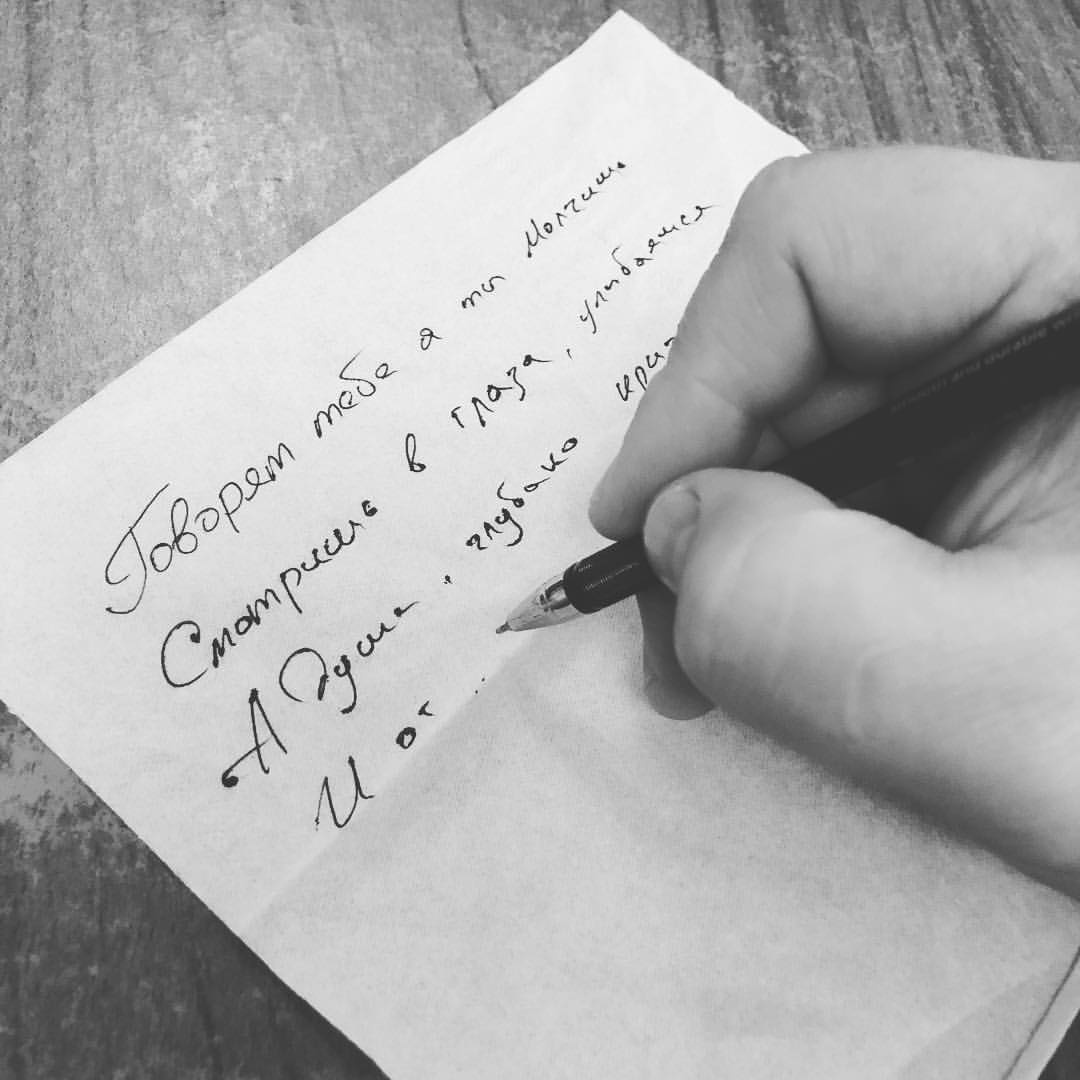 Говорят тебе а ты молчишь
Смотришь в глаза, улыбаешся
А душа, глубако
И от